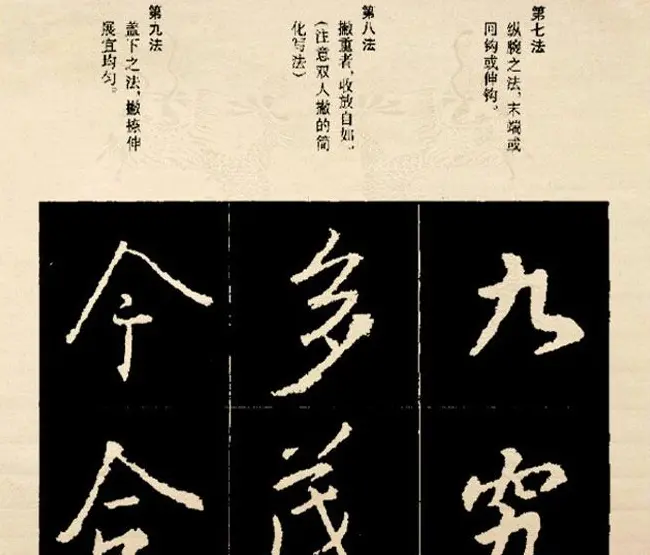 第七法
纵腕之法,末端或
回钩或伸钩。
第八法
撇重者,收放自如。
(注意双人撇的简
化写法)
第九法
盖下之法,撇捺伸
展宜均匀。
九
多
茂
今
合